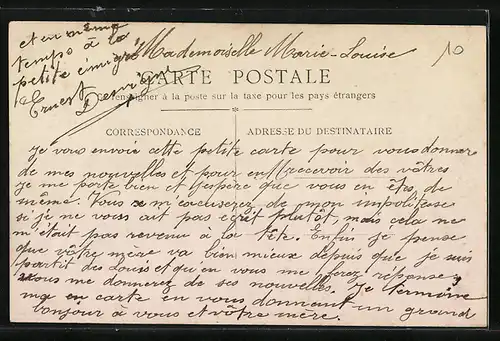 Mademoiselle Marie-Louise
10
CARTE POSTALE
renseigner à la poste sur la taxe pour les pays étrangers
CORRESPONDANCE
ADRESSE DU DESTINATAIRE
Je vous envoie cette petite carte pour vous donner
de mes nouvelles et pour en recevoir des vôtres
Je me porte bien et j'espère que vous en êtes de
même. Vous m'excuserez de mon impolitesse
si je ne vous ait pas écrit plutôt, mais cela ne
m'était pas revenu à la tête. Enfin je pense
que vôtre mère va bien mieux depuis que je suis
partit des Louis et qu'en vous me ferez réponse
vous me donnerez de ses nouvelles. Je termine
ma carte en vous donnant un grand
bonjour à vous et vôtre mère.
et en même
temps à la
petite émigré
Ernest